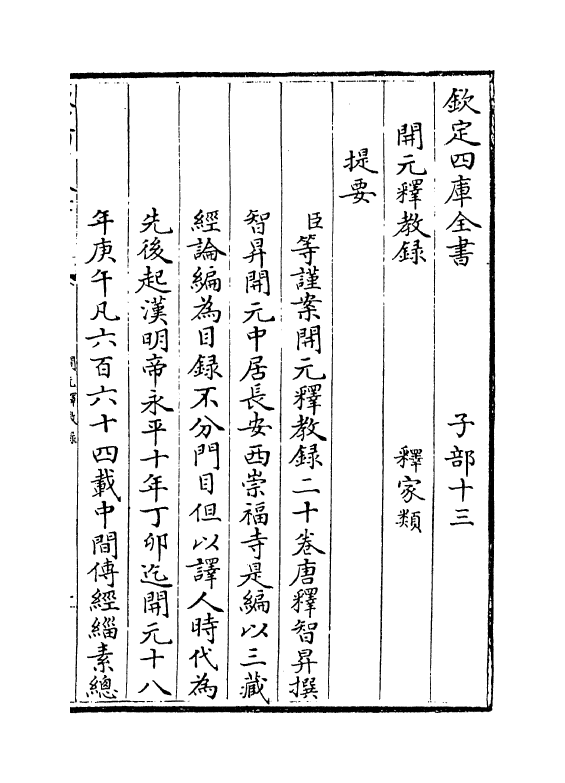 欽定四庫全書　子部十三
開元釋教録　釋家類
提要
臣等謹案開元釋教録二十卷唐釋智昇撰
智昇開元中居長安西崇福寺是編以三藏
經論編為目録不分門目但以譯人時代為
先後起漢明帝永平十年丁卯迄開元十八
年庚午凡六百六十四載中間傳經緇素總
開元釋教録